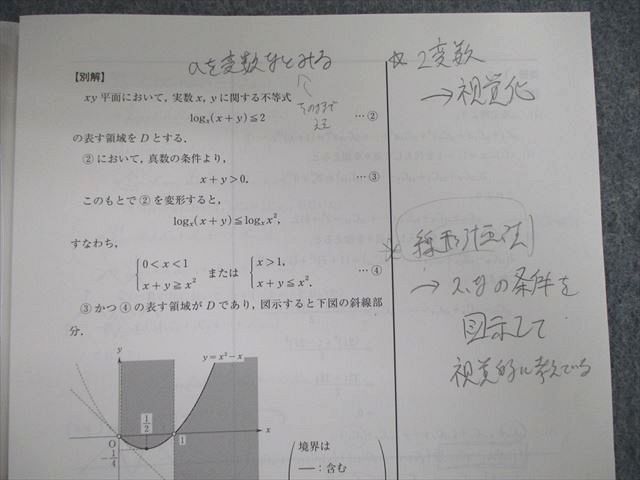 aを変数とみる
【別解】
xy平面において，実数x，yに関する不等式
logₓ(x+y)≦2 …②
の表す領域をDとする．
②において，真数の条件より，
x+y>0. …③
このもとで②を変形すると，
logₓ(x+y)≦logₓx²,
すなわち，
{0<x<1 x+y≧x² または {x>1, x+y≦x². …④
③かつ④の表す領域がDであり，図示すると下図の斜線部
分．
y
y=x²−x
1/2
O
1
x
−1/4
境界は
──：含む
☆ 2変数
→視覚化
※ 線形計画法
→ x,yの条件を
図示して
視覚的に考えている